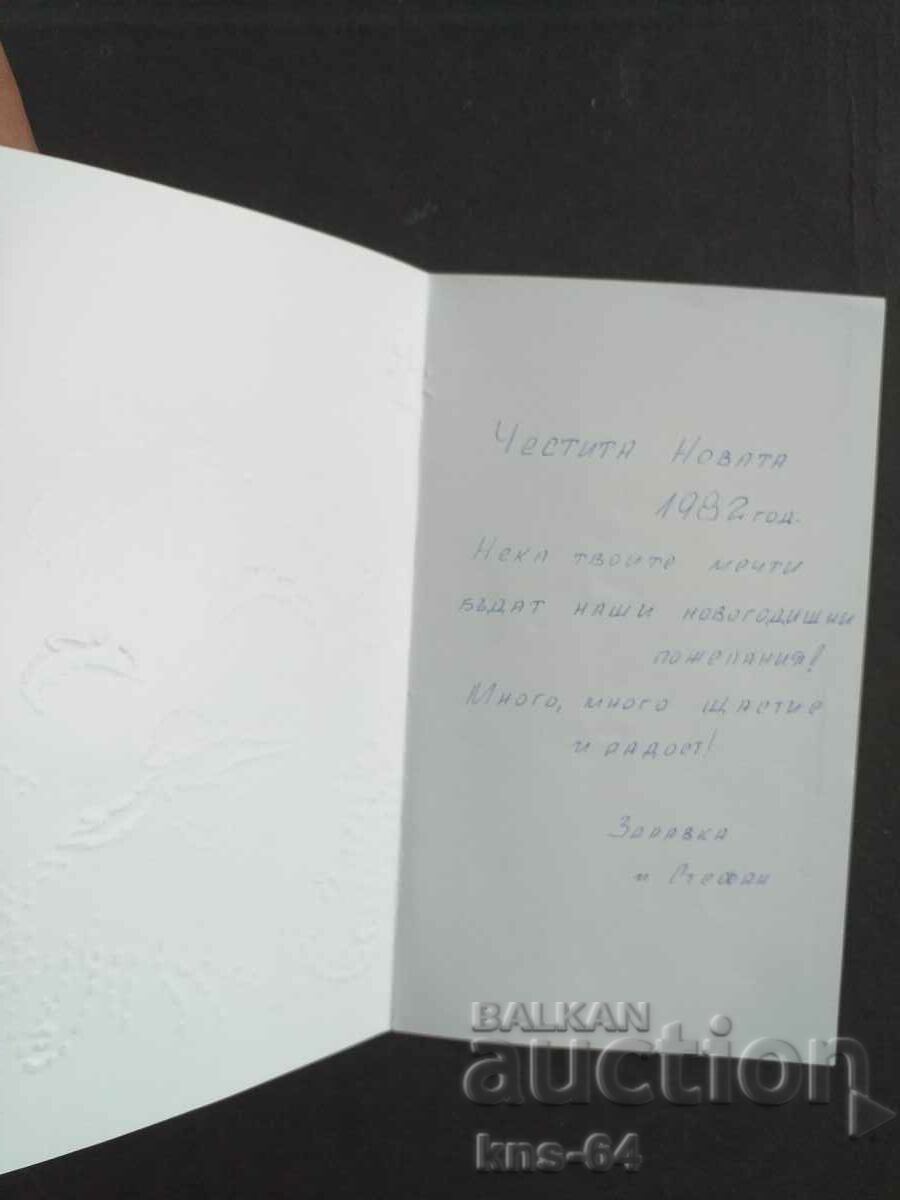 Честита Новата
1982 год.
Нека твоите мечти
бъдат наши новогодишни
пожелания!
Много, много щастие
и радост!
Здравка
и Стефан
BALKAN
auction
kns-64